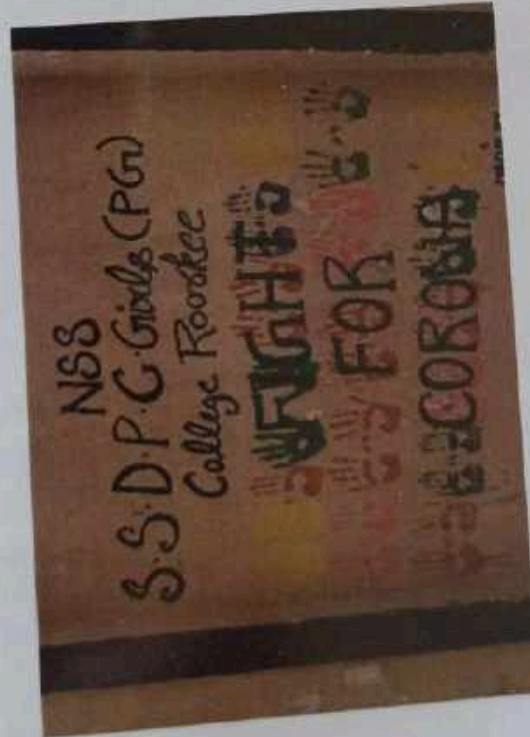 NSS
S.S.D.P.C.Girls (PG)
College Roorkee
FIGHT
FOR
CORONA